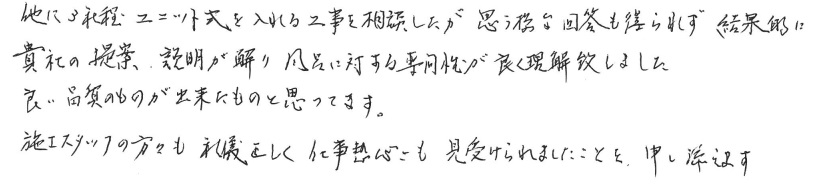 他に3社程ユニット式を入れる工事を相談したが 思う様な回答も得られず 結果的に
貴社の提案、説明が解り 風呂に対する専門性が良く理解致しました
良い品質のものが出来たものと思ってます。
施工スタッフの方々も 礼儀正しく 仕事熱心にも 見受けられましたことを、申し添えます